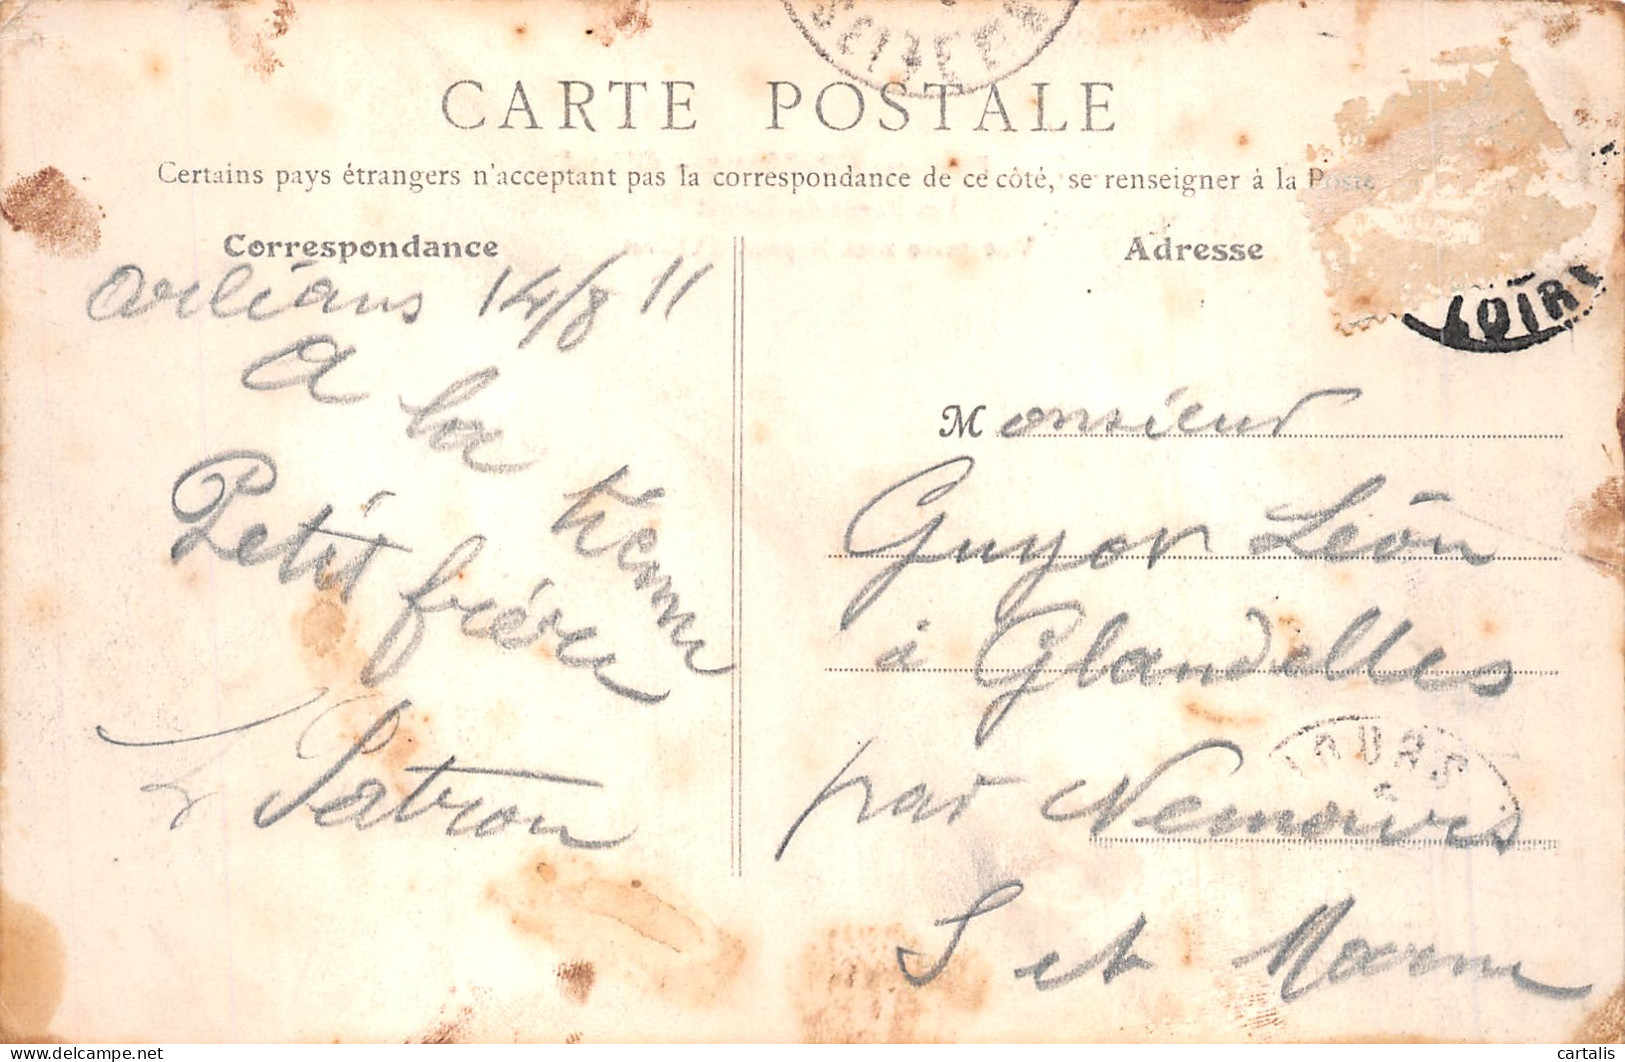 CARTE POSTALE
Certains pays étrangers n'acceptant pas la correspondance de ce côté, se renseigner à la Poste
Correspondance
Orléans 14/8 11
A la tienne
Petit frère
L Patron
Adresse
LOIR
Monsieur
Guyot Léon
à Glandelles
par Nemours
S et Marne
cartalis